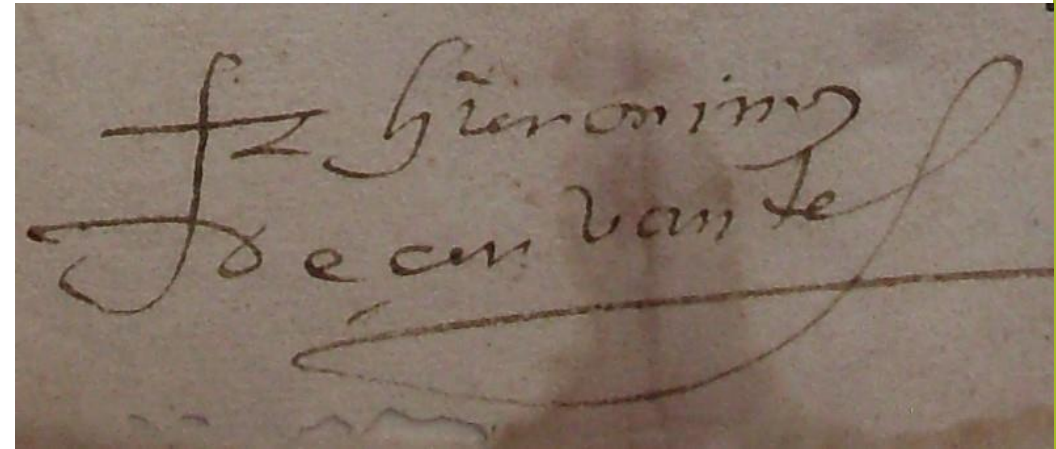 fr hieronimo
de cervantes